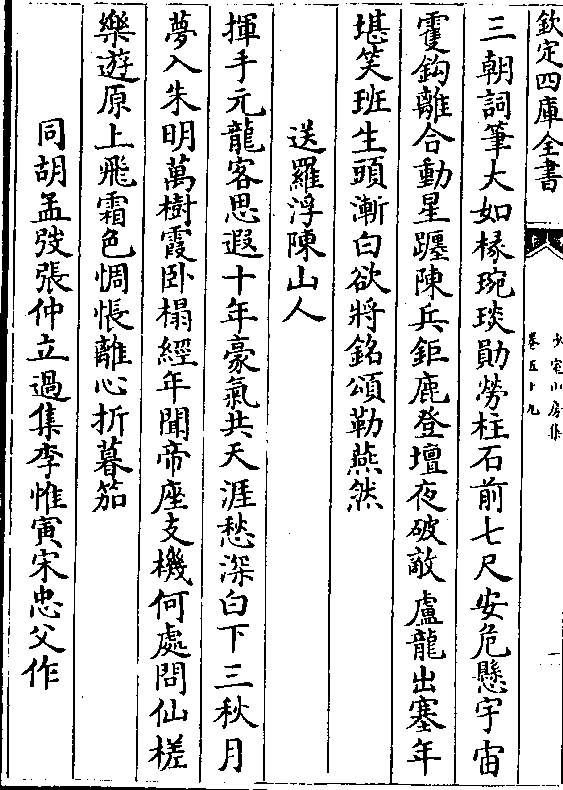 欽定四庫全書
少室山房集
卷五十九
三朝詞筆大如椽琬琰勛勞柱石前七尺安危懸宇宙
雙鈎離合動星躔陳兵鉅鹿登壇夜破敵盧龍出塞年
堪笑班生頭漸白欲將銘頌勒燕然
送羅浮陳山人
揮手元龍客思遐十年豪氣共天涯愁深白下三秋月
夢入朱明萬樹霞卧榻經年聞帝座支機何處問仙槎
樂遊原上飛霜色惆悵離心折暮笳
同胡孟弢張仲立過集李惟寅宋忠父作